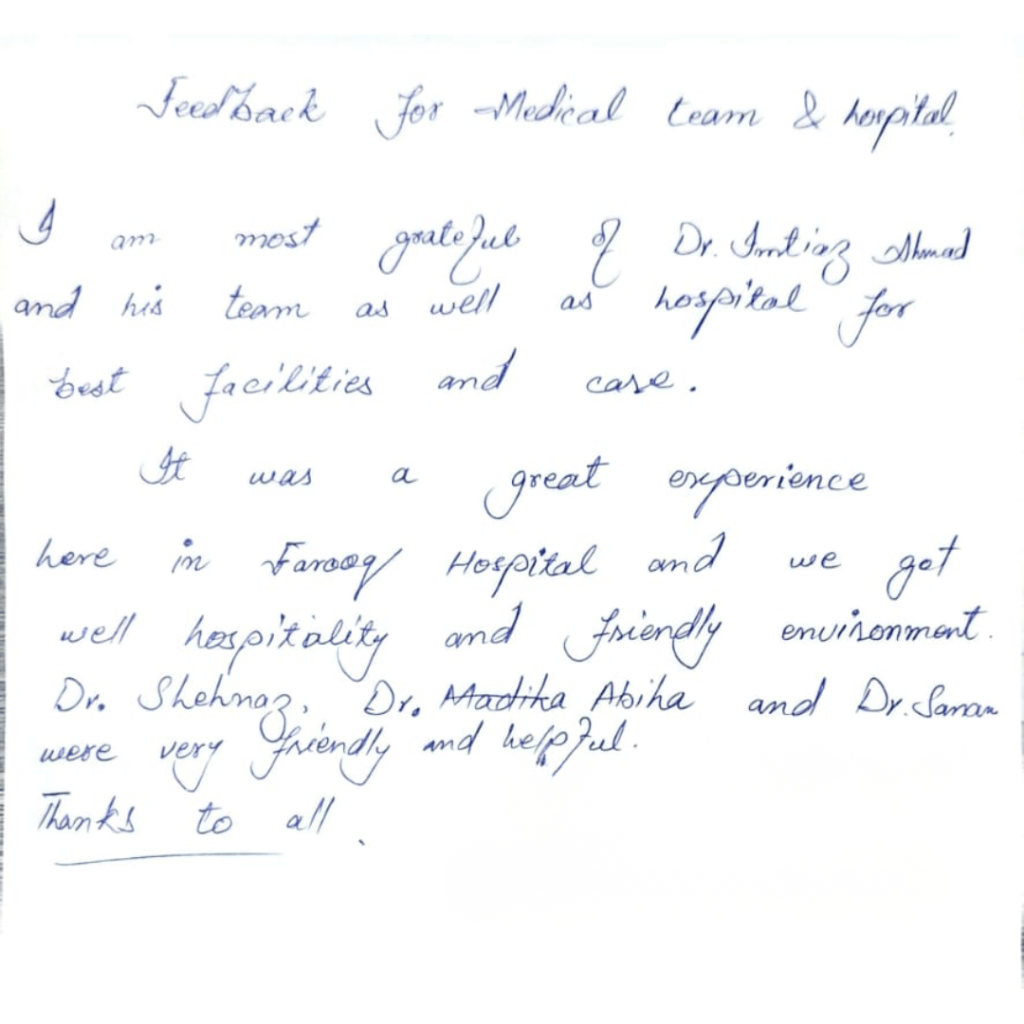 Feedback for Medical team & hospital.
I am most grateful of Dr. Imtiaz Ahmad
and his team as well as hospital for
best facilities and care.
It was a great experience
here in Farooq Hospital and we got
well hospitality and friendly environment.
Dr. Shehnaz, Dr. Madika Abiha and Dr. Sanam
were very friendly and helpful.
Thanks to all.